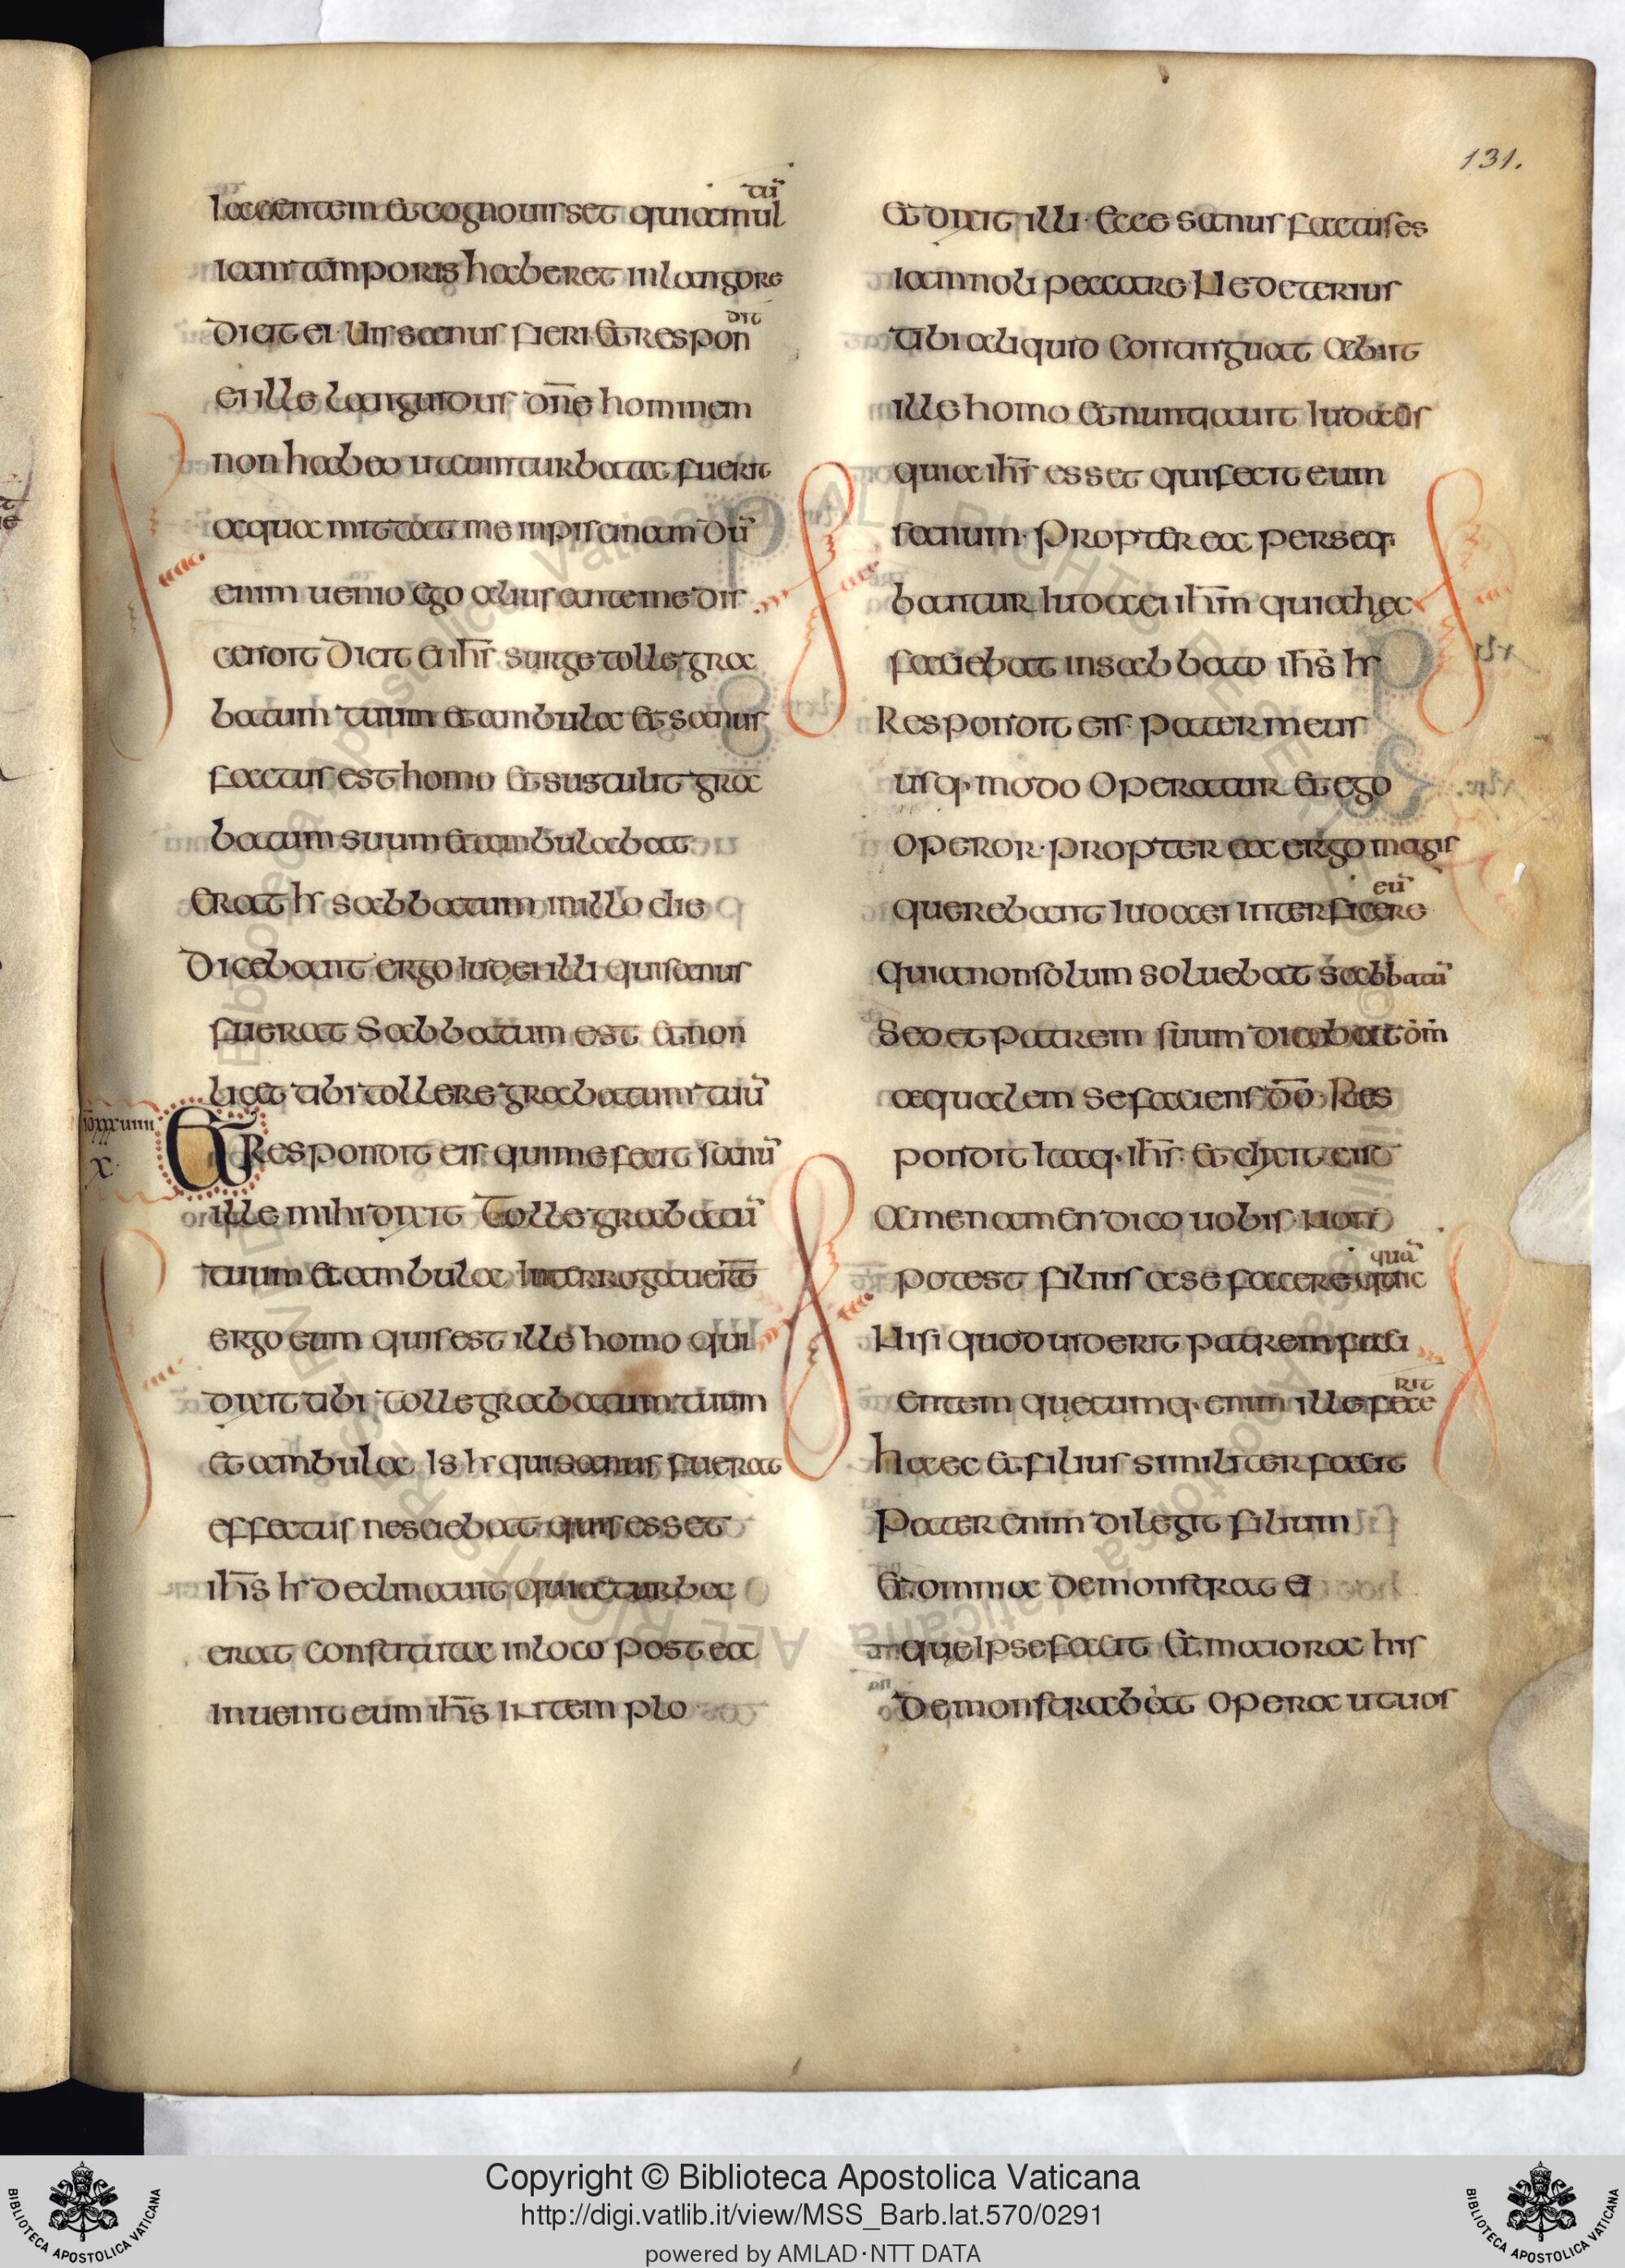 131.
iacentem et cognouisset quia mul
tū
iam temporis haberet in langore
dicit ei uis sanus fieri et respon
dit
ei ille languidus dn̄e hominem
non habeo ut cum turbata fuerit
aqua mittat me in piscinam dū
enim uenio ego alius ante me dis
cendit dicit ei ihs̄ surge tolle gra
batum tuum et ambula et sanus
factus est homo et sustulit gra
batum suum et ambulabat
erat hr sabbatum in illo die
dicebant ergo iudei illi qui sanus
fuerat sabbatum est et non
licet tibi tollere grabatum tuū
Respondit eis qui me fecit sanū
x
ille mihi dixit tolle grabatū
tuum et ambula interrogauer̄t
ergo eum quis est ille homo qui
dixit tibi tolle grabatum tuum
et ambula is hr qui sanus fuerat
effectus nesciebat quis esset
ihs̄ hr declinauit quia turba
erat constituta in loco post ea
inuenit eum ihs̄ in templo
et dixit illi ecce sanus factus es
iam noli peccare ne deterius
tibi aliquid contingat abiit
ille homo et nuntiauit iudaeis
quia ihs̄ esset qui fecit eum
sanum propter ea perseq·
bantur iudaei ihm̄ quia hec
faciebat in sabbato ihs̄ hr
Respondit eis pater meus
usq· modo operatur et ego
operor propter ea ergo magis
querebant iudaei interficere
eū
quia non solum soluebat sabbatū
sed et patrem suum dicebat dm̄
aequalem se faciens dō Res
pondit itaq· ihs̄ et dixit eis
amen amen dico uobis non
potest filius a se facere quic
quā
nisi quod uiderit patrem faci
entem quecumq· enim ille fece
rit
haec et filius similiter facit
Pater enim diligit filium
et omnia demonstrat ei
que ipse facit et maiora his
demonstrabat opera ut uos
Copyright © Biblioteca Apostolica Vaticana
http://digi.vatlib.it/view/MSS_Barb.lat.570/0291
powered by AMLAD·NTT DATA
BIBLIOTECA APOSTOLICA VATICANA
BIBLIOTECA APOSTOLICA VATICANA